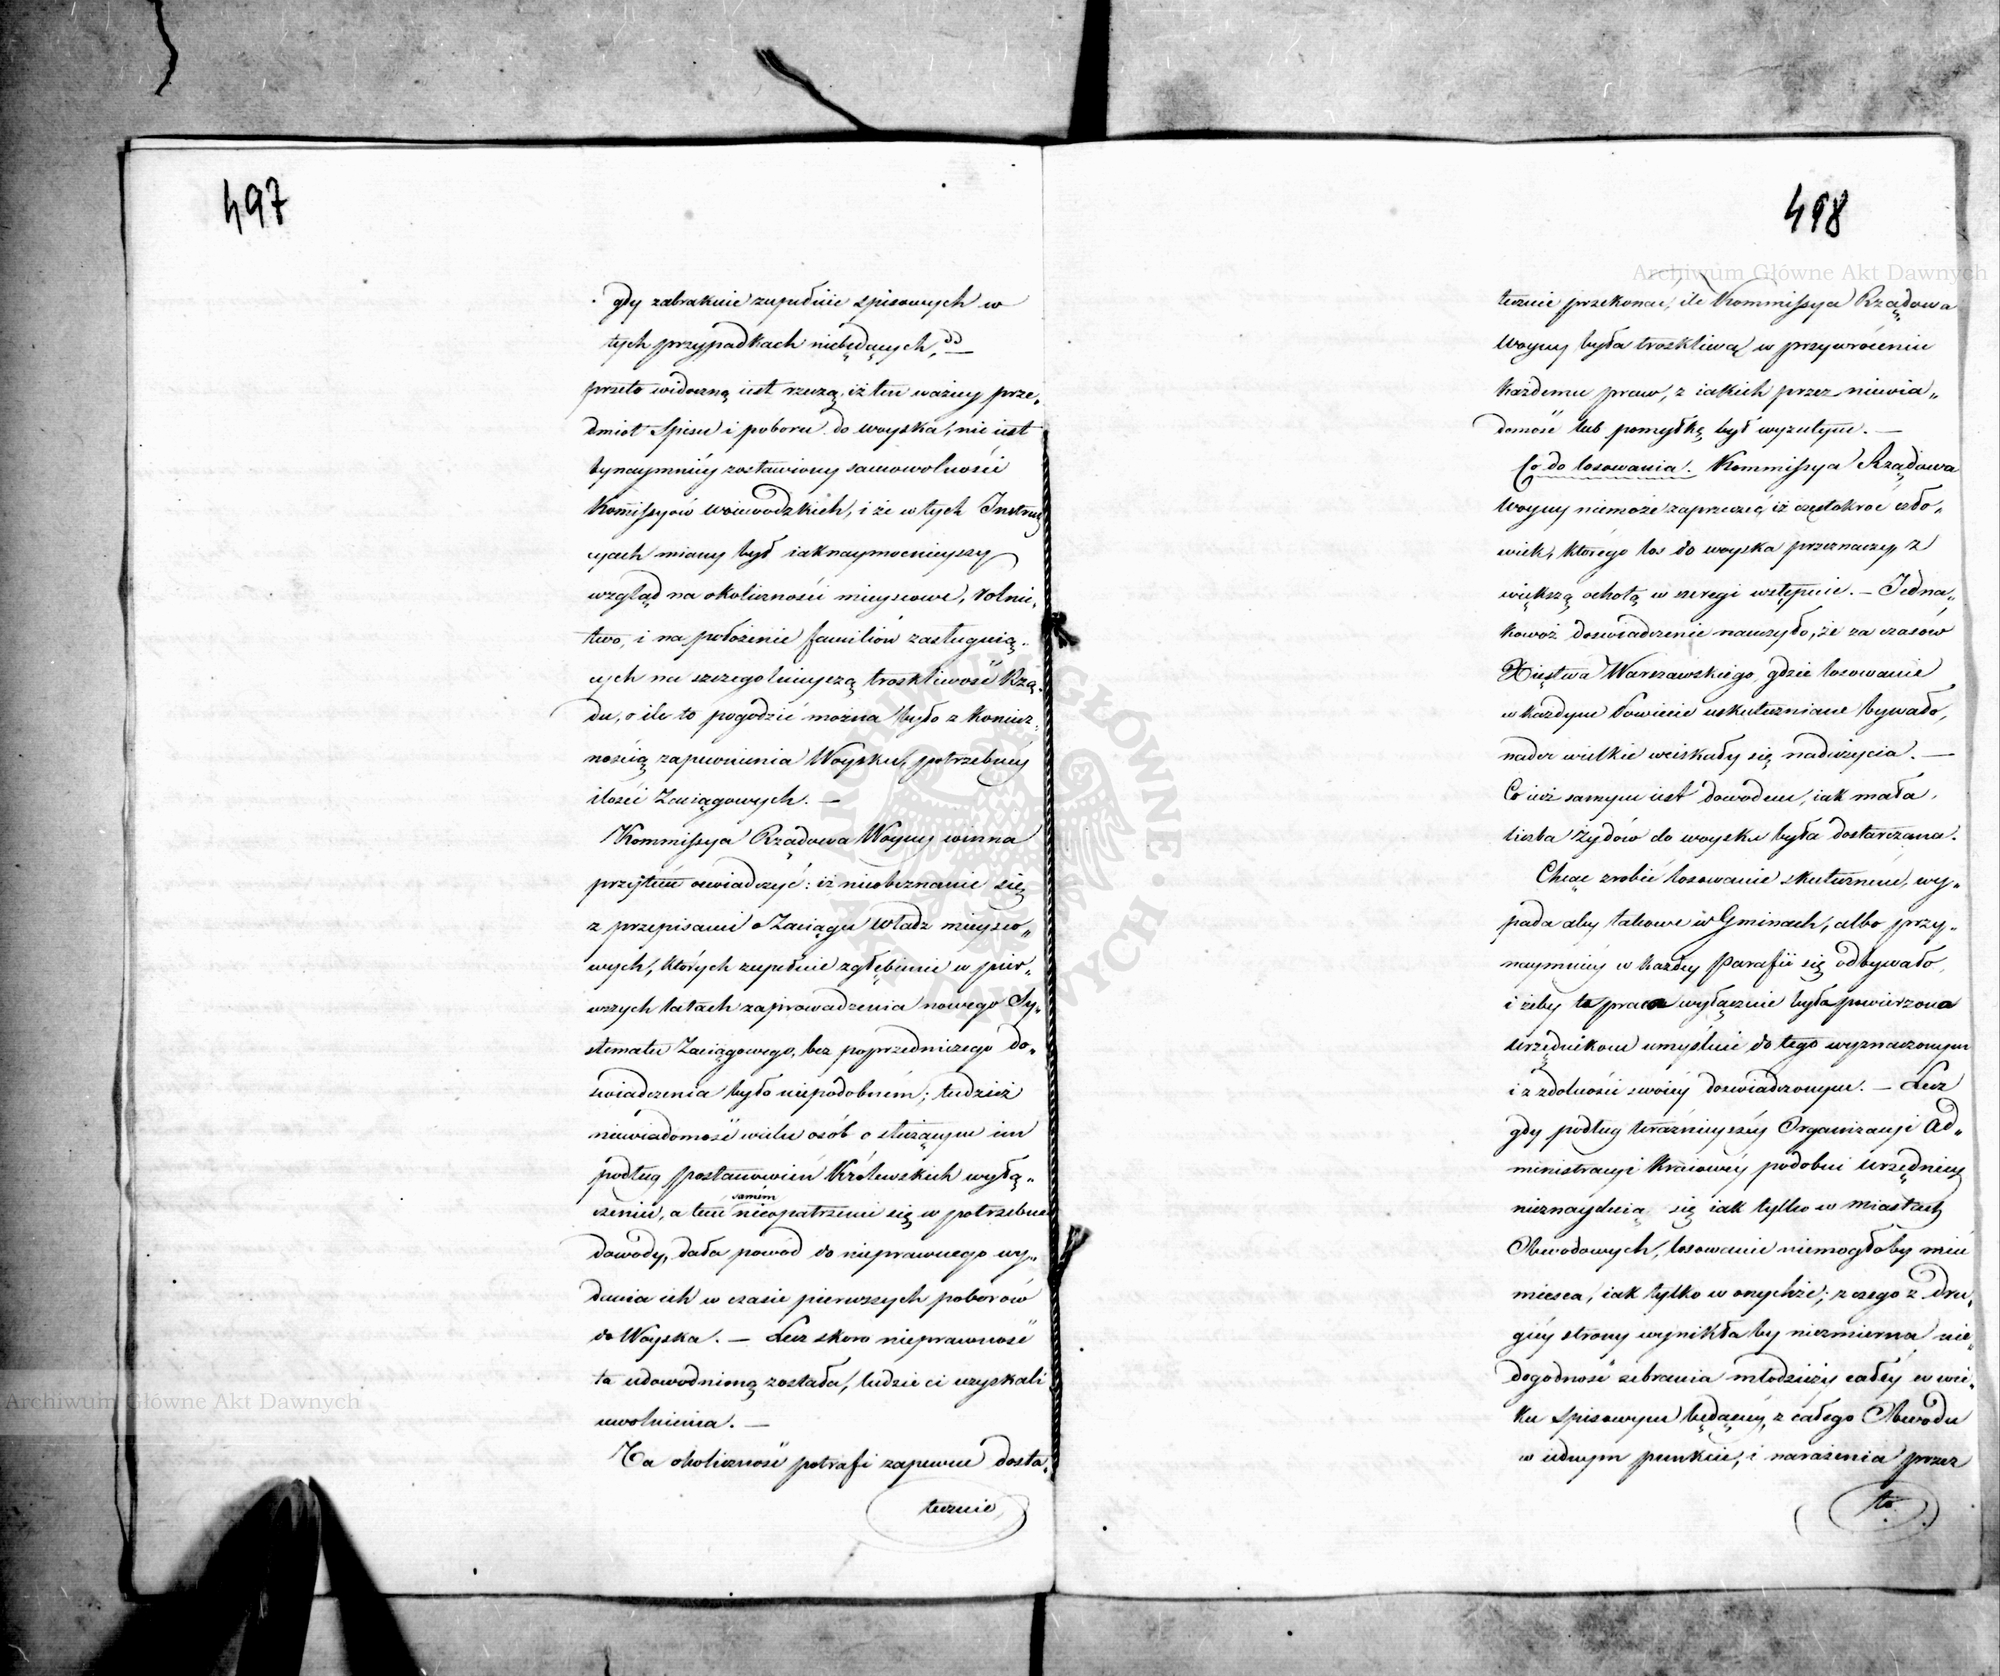 497
gdy zabraknie zupełnie spisowych w
tych przypadkach niebędących,"—
przeto widoczną iest rzeczą, iż ten ważny prze„
dmiot Spisu i poboru do woyska, nie iest
bynaymniéy zostawiony samowolności
Kommissyów woiewodzkich, i że w tych Instruk
cyach miany był iaknaymocnieyszy
wzgląd na okoliczności mieyscowe, rolnic„
two, i na położenie familiów zasługuią„
cych na szczegolnieyszą troskliwość Rzą„
du, o ile to pogodzić można było z koniecz„
nością zapewnienia Woysku, potrzebnéy
ilości Zaciągowych. —
Kommissya Rządowa Woyny winna
przytém oswiadczyć: iż nieobeznanie się
z przepisami o Zaciągu Władz mieysco„
wych, których zupełne zgłębienie w pier„
wszych latach zaprowadzenia nowego Sy„
stematu Zaciągowego, bez poprzedniczego do„
swiadczenia było niepodobném; tudzież
niewiadomość wielu osób o służącym im
podług postanowień Królewskich wyłą„
czeniu, a tém samém nieopatrzenie się w potrzebne
dowody, dała powód do nieprawnego wy„
dania ich w czasie pierwszych poborów
do Woyska. — Lecz skoro nieprawność
ta udowodnioną została, ludzie ci uzyskali
uwolnienia. —
Ta okoliczność potrafi zapewne dosta„
tecznie
498
tecznie przekonać, ile Kommissya Rządowa
Woyny była troskliwą w przywróceniu
każdemu praw, z iakich przez niewia„
domość lub pomyłkę był wyzutym. —
Co do losowania. Kommissya Rządowa
Woyny niemoże zaprzeczyć iż częstokroć czło„
wiek, którego los do woyska przeznaczy, z
większą ochotą w szeregi wstępuie. — Jedna„
kowoż doswiadczenie nauczyło, że za czasów
Xięstwa Warszawskiego, gdzie losowanie
w każdym Powiecie uskuteczniane bywało,
nader wielkie wciskały się nadużycia. —
Co iuż samym iest dowodem, iak mała
liczba Żydów do woyska była dostarczana.
Chcąc zrobić losowanie skuteczném, wy„
pada aby takowe w Gminach, albo przy„
naymniéy w każdéy Parafii się odbywało,
i żeby ta praca wyłącznie była powierzona
Urzędnikom umyślnie do tego wyznaczonym
i z zdolności swoiéy doswiadczonym. — Lecz
gdy podług teraźnieyszéy Organizacyi Ad„
ministracyi Kraiowéy podobni urzędnicy
nieznayduią się iak tylko w Miastach
Obwodowych, losowanie niemogłoby mieć
mieysca, iak tylko w onychże; z czego z dru„
giéy strony wynikła by niezmierna nie„
dogodność zebrania młodzieży całéy w wie„
ku spisowym będącéy, z całego Obwodu
w iednym punkcie, i narażenia przez
to
Archiwum Główne Akt Dawnych
Archiwum Główne Akt Dawnych
ARCHIWUM GŁÓWNE AKT DAWNYCH